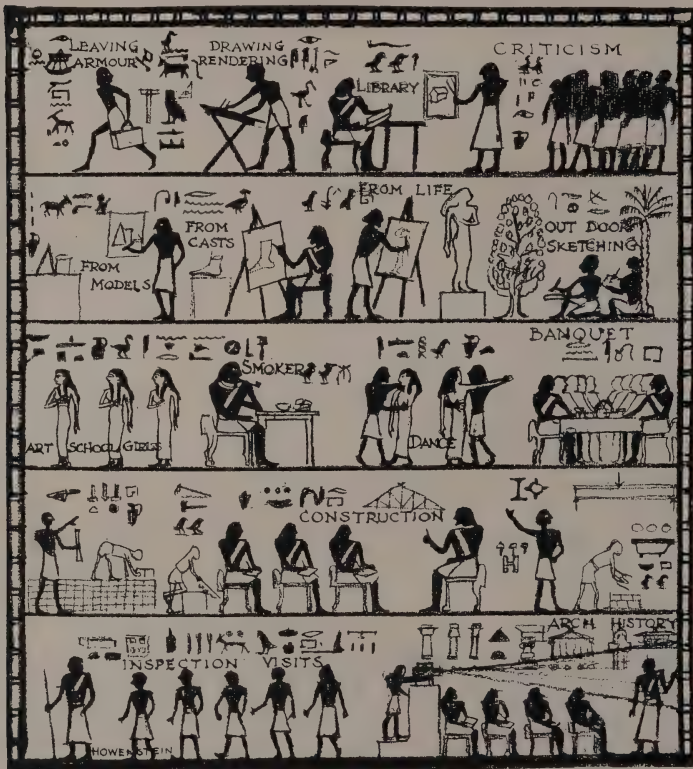 LEAVING
ARMOUR
DRAWING
RENDERING
LIBRARY
CRITICISM
FROM
MODELS
FROM
CASTS
FROM LIFE
OUT DOOR
SKETCHING
ART SCHOOL GIRLS
SMOKER
DANCE
BANQUET
CONSTRUCTION
INSPECTION VISITS
ARCH HISTORY
HOWENSTEIN